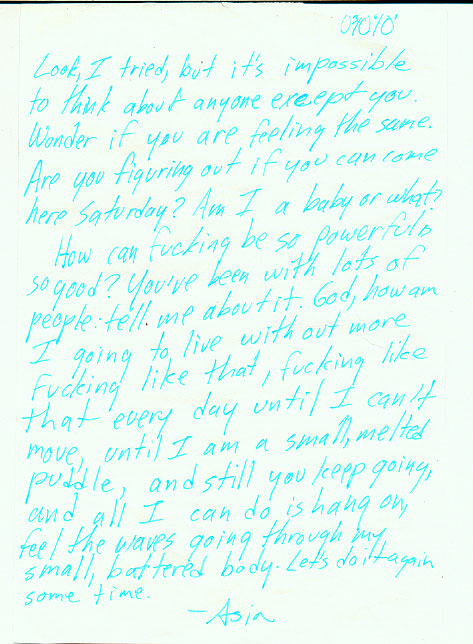 Look, I tried, but it's impossible
to think about anyone except you.
Wonder if you are feeling the same.
Are you figuring out if you can come
here Saturday? Am I a baby or what?
How can fucking be so powerful,
so good? You've been with lots of
people: tell me about it. God, how am
I going to live with out more
Fucking like that, fucking like
that every day until I can't
move, until I am a small, melted
puddle, and still you keep going,
and all I can do is hang on,
feel the waves going through my
small, battered body. Let's do it again
some time.
—Asia